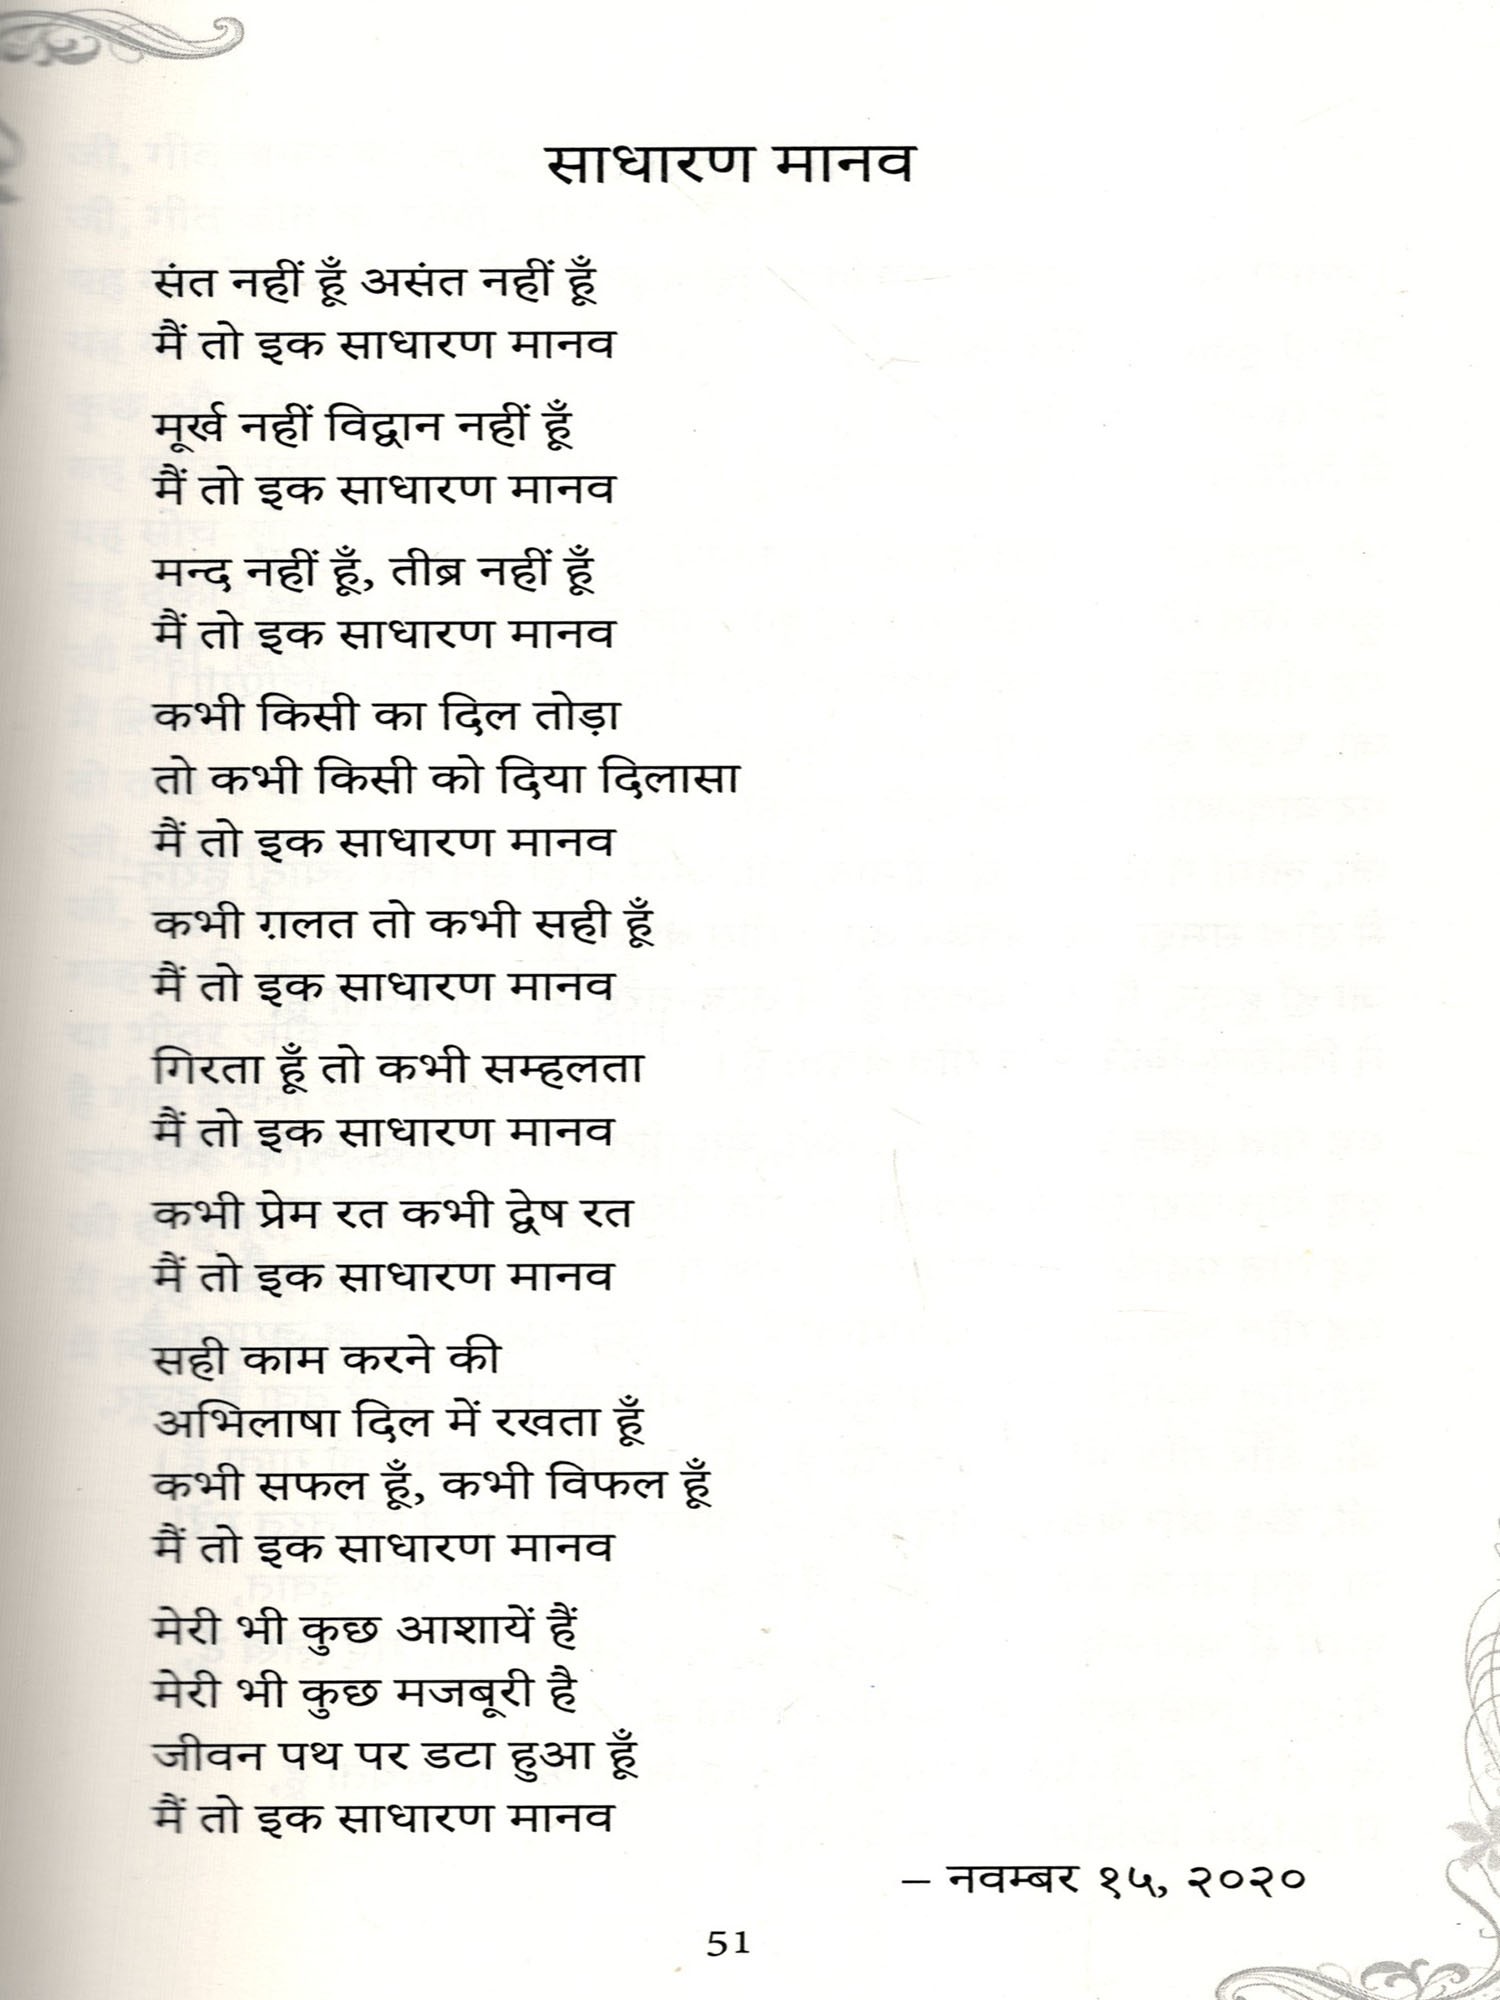 साधारण मानव
संत नहीं हूँ असंत नहीं हूँ
मैं तो इक साधारण मानव
मूर्ख नहीं विद्वान नहीं हूँ
मैं तो इक साधारण मानव
मन्द नहीं हूँ, तीब्र नहीं हूँ
मैं तो इक साधारण मानव
कभी किसी का दिल तोड़ा
तो कभी किसी को दिया दिलासा
मैं तो इक साधारण मानव
कभी ग़लत तो कभी सही हूँ
मैं तो इक साधारण मानव
गिरता हूँ तो कभी सम्हलता
मैं तो इक साधारण मानव
कभी प्रेम रत कभी द्वेष रत
मैं तो इक साधारण मानव
सही काम करने की
अभिलाषा दिल में रखता हूँ
कभी सफल हूँ, कभी विफल हूँ
मैं तो इक साधारण मानव
मेरी भी कुछ आशायें हैं
मेरी भी कुछ मजबूरी है
जीवन पथ पर डटा हुआ हूँ
मैं तो इक साधारण मानव
– नवम्बर १५, २०२०
51